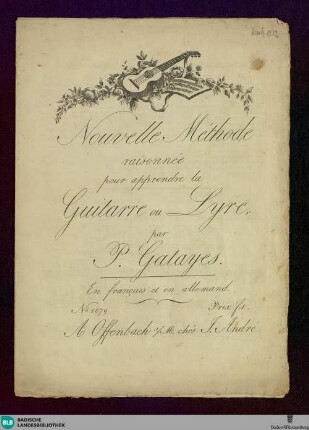 Nouvelle Méthode
raisonnée
pour apprendre la
Guitarre ou Lyre,
par
P. Gatayes.
En français et en allemand
No 1679. Prix f1.
A Offenbach s/M. chés J. André
BLB BADISCHE
LANDESBIBLIOTHEK
Baden-Württemberg